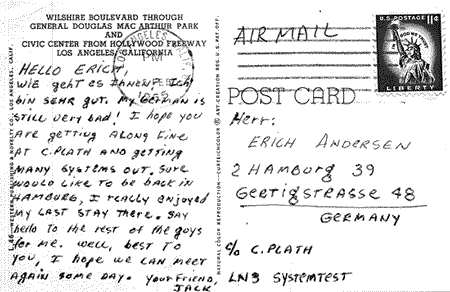 WILSHIRE BOULEVARD THROUGH
GENERAL DOUGLAS MAC ARTHUR PARK
AND
CIVIC CENTER FROM HOLLYWOOD FREEWAY
LOS ANGELES, CALIFORNIA
HELLO ERICH,
WIE GEHT ES IHNEN? ICH
BIN SEHR GUT. MY GERMAN IS
STILL VERY BAD! I HOPE YOU
ARE GETTING ALONG FINE
AT C.PLATH AND GETTING
MANY SYSTEMS OUT. SURE
WOULD LIKE TO BE BACK IN
HAMBURG, I REALLY ENJOYED
MY LAST STAY THERE. SAY
HELLO TO THE REST OF THE GUYS
FOR ME. WELL, BEST TO
YOU, I HOPE WE CAN MEET
AGAIN SOME DAY. YOUR FRIEND,
JACK
LOS ANGELES
PM
NATURAL COLOR REPRODUCTION
AIR MAIL
U.S. POSTAGE 11¢
IN GOD WE TRUST
LIBERTY
POST CARD
Herr:
ERICH ANDERSEN
2 HAMBURG 39
GERTIGSTRASSE 48
GERMANY
c/o C.PLATH
LN3 SYSTEMTEST